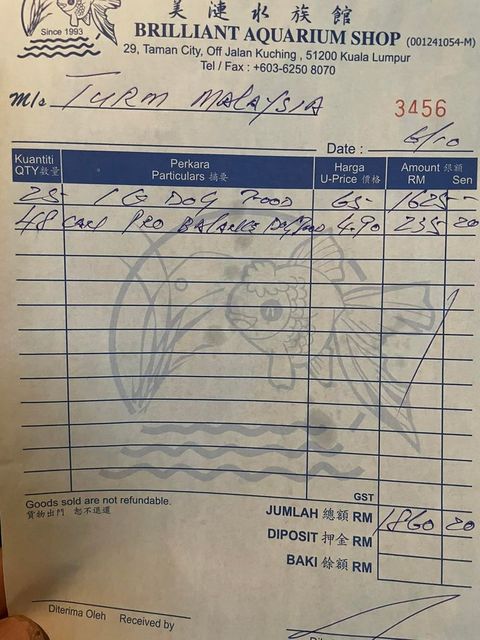 美漣水族館
Since 1993
BRILLIANT AQUARIUM SHOP (001241054-M)
29, Taman City, Off Jalan Kuching , 51200 Kuala Lumpur
Tel / Fax : +603-6250 8070
M/s TURM MALAYSIA
3456
Date : 6/10
Kuantiti Perkara Harga Amount 銀額
QTY 數量 Particulars 摘要 U-Price 價格 RM Sen
25- DOG FOOD 65- 1625 -
48 CANS PRO BALANCE 4.90 235 20
GST
Goods sold are not refundable.
貨物出門 恕不退還
JUMLAH 總額 RM 1860 20
DIPOSIT 押金 RM
BAKI 餘額 RM
Diterima Oleh Received by